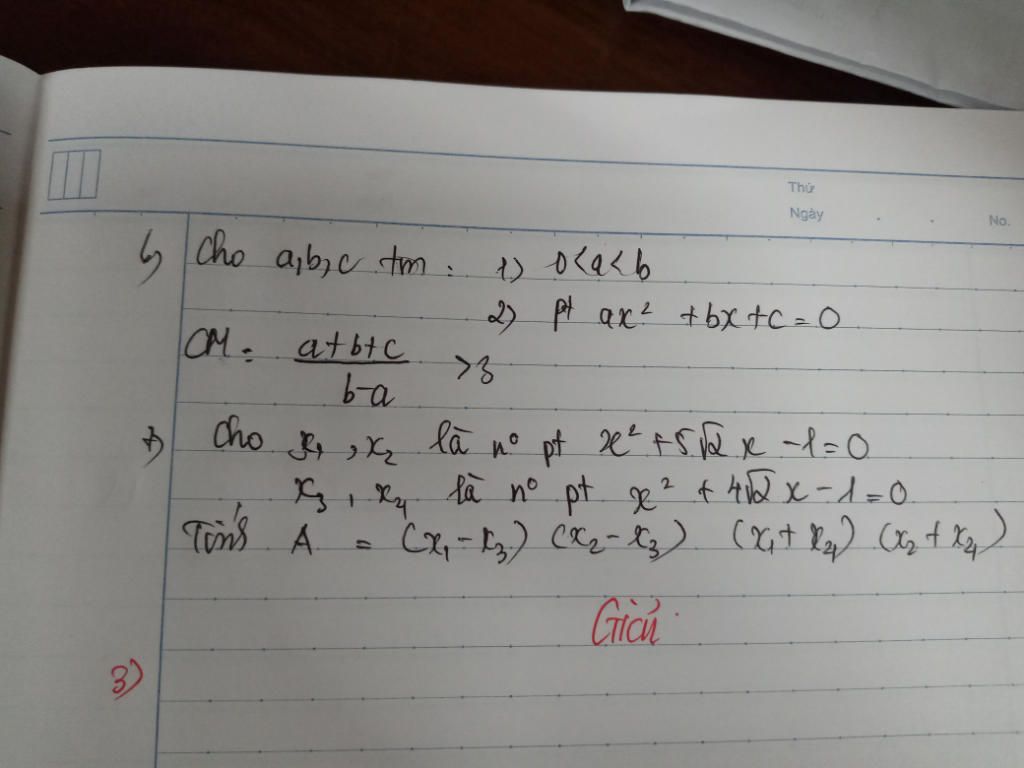 Thứ
Ngày . . No.
6) Cho a,b,c tm : 1) 0<a<b
2) pt ax² +bx+c=0
CM: \frac{a+b+c}{b-a} >3
7) Cho x₁ , x₂ là n⁰ pt x² + 5√2 x - 1 = 0
x₃ , x₄ là n⁰ pt x² + 4√2 x - 1 = 0
Tính A = (x₁ - x₃) (x₂ - x₃) (x₁ + x₄) (x₂ + x₄)
Giải
3)